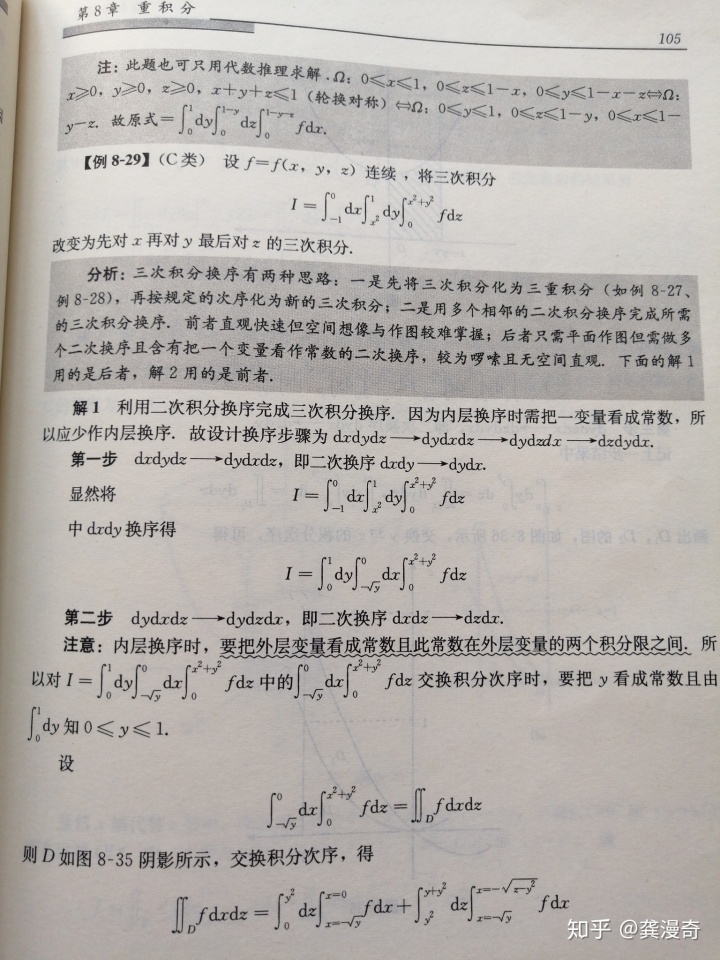 第8章 重积分
105
注: 此题也可只用代数推理求解. Ω: 0≤x≤1, 0≤z≤1-x, 0≤y≤1-x-z⇔Ω:
x≥0, y≥0, z≥0, x+y+z≤1 (轮换对称) ⇔Ω: 0≤y≤1, 0≤z≤1-y, 0≤x≤1-
y-z. 故原式=∫_0^1 dy∫_0^{1-y} dz∫_0^{1-y-z} fdx.
【例 8-29】(C类) 设 f=f(x, y, z) 连续, 将三次积分
I=∫_{-1}^0 dx∫_{x²}^1 dy∫_0^{x²+y²} fdz
改变为先对 x 再对 y 最后对 z 的三次积分.
分析: 三次积分换序有两种思路: 一是先将三次积分化为三重积分 (如例 8-27、
例 8-28), 再按规定的次序化为新的三次积分; 二是用多个相邻的二次积分换序完成所需
的三次积分换序. 前者直观快速但空间想像与作图较难掌握; 后者只需平面作图但需做多
个二次换序且含有把一个变量看作常数的二次换序, 较为啰嗦且无空间直观. 下面的解 1
用的是后者, 解 2 用的是前者.
解 1 利用二次积分换序完成三次积分换序. 因为内层换序时需把一变量看成常数, 所
以应少作内层换序. 故设计换序步骤为 dxdydz→dydxdz→dydzdx→dzdydx.
第一步 dxdydz→dydxdz, 即二次换序 dxdy→dydx.
显然将 I=∫_{-1}^0 dx∫_{x²}^1 dy∫_0^{x²+y²} fdz
中 dxdy 换序得
I=∫_0^1 dy∫_{-√y}^0 dx∫_0^{x²+y²} fdz
第二步 dydxdz→dydzdx, 即二次换序 dxdz→dzdx.
注意: 内层换序时, 要把外层变量看成常数且此常数在外层变量的两个积分限之间. 所
以对 I=∫_0^1 dy∫_{-√y}^0 dx∫_0^{x²+y²} fdz 中的∫_{-√y}^0 dx∫_0^{x²+y²} fdz 交换积分次序时, 要把 y 看成常数且由
∫_0^1 dy 知 0≤y≤1.
设
∫_{-√y}^0 dx∫_0^{x²+y²} fdz=∬_D fdxdz
则 D 如图 8-35 阴影所示, 交换积分次序, 得
∬_D fdxdz=∫_0^{y²} dz∫_{x=-√y}^{x=0} fdx+∫_{y²}^{y+y²} dz∫_{x=-√y}^{x=-√(z-y²)} fdx
知乎 @龚漫奇